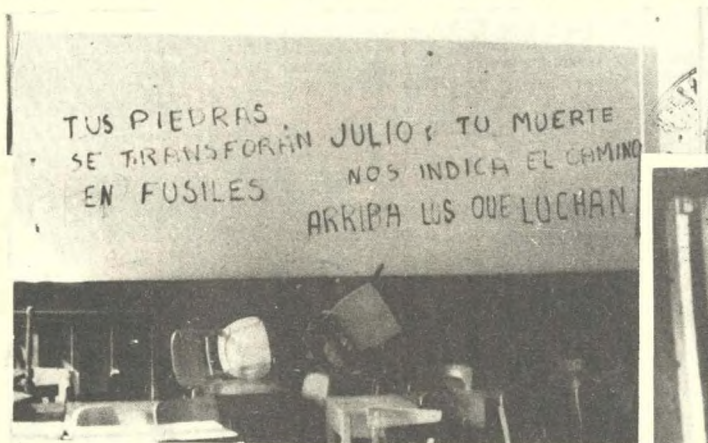 TUS PIEDRAS
SE TRANSFORAN
EN FUSILES
JULIO: TU MUERTE
NOS INDICA EL CAMINO
ARRIBA LOS QUE LUCHAN